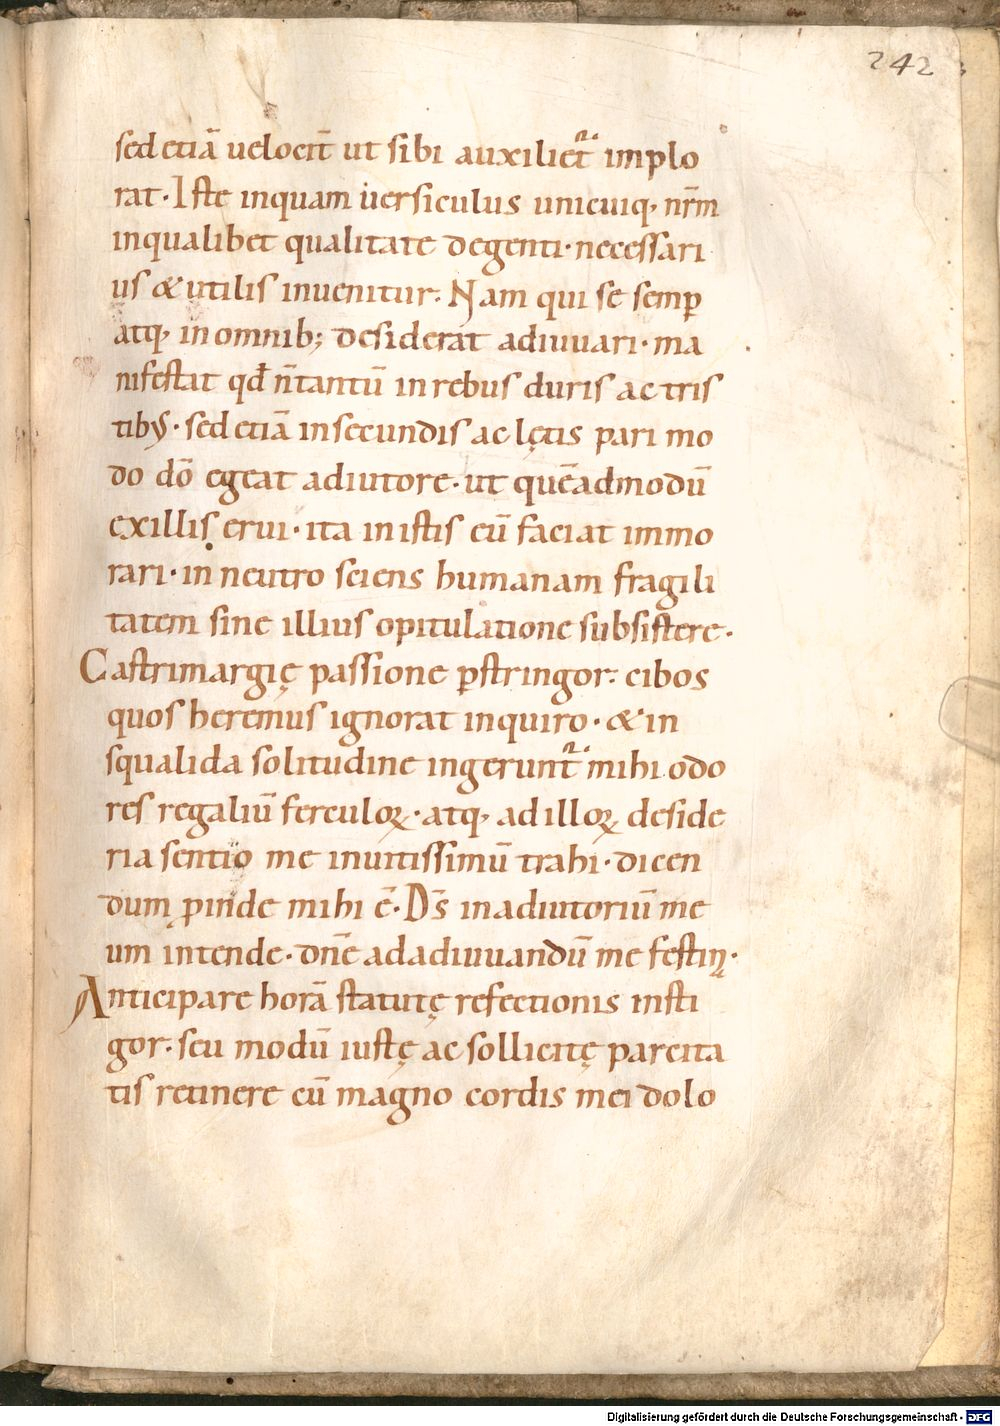 242
sed etiā velocit̄ ut sibi auxiliet᷑ implo
rat · Iste inquam versiculus unicuiq; nr̄m
inqualibet qualitate degenti · necessari
us & utilis invenitur. Nam qui se semꝑ
atq; in omnib; desiderat adiuvari · ma
nifestat qđ n̄ tantū in rebus duris ac tris
tibꝰ · sed etiā in secundis ac lętis pari mo
do dō egeat adiutore · ut quēadmodū
ex illis erui · ita in istis eū faciat immo
rari · in neutro sciens humanam fragili
tatem sine illius opitulatione subsistere ·
Castrimargię passione ꝑstringor · cibos
quos heremus ignorat inquiro · & in
squalida solitudine ingerunt᷑ mihi odo
res regaliū ferculoꝝ · atq; ad illoꝝ deside
ria sentio me invitissimū trahi · dicen
dum ꝓinde mihi ē · Ds̄ in adiutoriū me
um intende · dn̄e ad adiuvandū me festin̨ ·
Anticipare horā statutę refectionis insti
gor · seu modū iustę ac sollicitę parcita
tis retinere cū magno cordis mei dolo
Digitalisierung gefördert durch die Deutsche Forschungsgemeinschaft - DFG